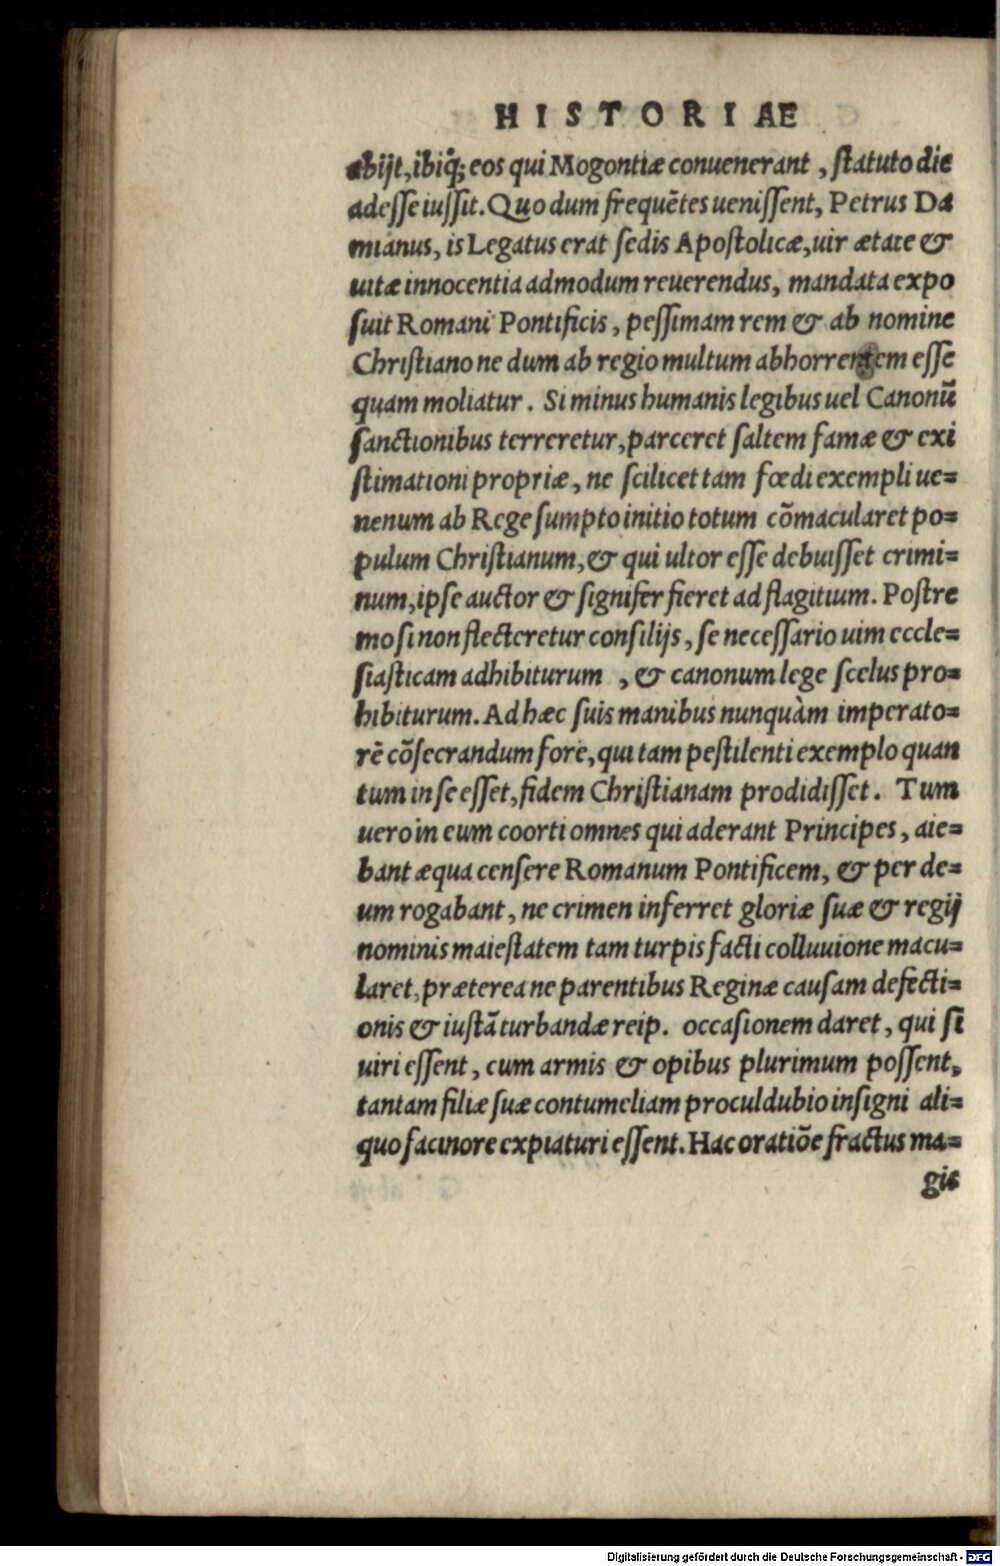 HISTORIAE
abijt, ibiq́; eos qui Mogontiæ conuenerant, statuto die
adesse iussit. Quo dum frequẽtes uenissent, Petrus Da
mianus, is Legatus erat sedis Apostolicæ, uir ætate &
uitæ innocentia admodum reuerendus, mandata expo
suit Romani Pontificis, pessimam rem & ab nomine
Christiano ne dum ab regio multum abhorrentem esse
quam moliatur. Si minus humanis legibus uel Canonũ
sanctionibus terreretur, parceret saltem famæ & exi
stimationi propriæ, ne scilicet tam fœdi exempli ue=
nenum ab Rege sumpto initio totum cõmacularet po=
pulum Christianum, & qui ultor esse debuisset crimi=
num, ipse auctor & signifer fieret ad flagitium. Postre
mo si non flecteretur consilijs, se necessario uim eccle=
siasticam adhibiturum, & canonum lege scelus pro=
hibiturum. Ad hæc suis manibus nunquàm imperato=
rẽ cõsecrandum fore, qui tam pestilenti exemplo quan
tum in se esset, fidem Christianam prodidisset. Tum
uero in eum coorti omnes qui aderant Principes, aie=
bant æqua censere Romanum Pontificem, & per de=
um rogabant, ne crimen inferret gloriæ suæ & regij
nominis maiestatem tam turpis facti colluuione macu=
laret, præterea ne parentibus Reginæ causam defecti=
onis & iustã turbandæ reip. occasionem daret, qui si
uiri essent, cum armis & opibus plurimum possent,
tantam filiæ suæ contumeliam proculdubio insigni ali=
quo facinore expiaturi essent. Hac oratiõe fractus ma=
gis
Digitalisierung gefördert durch die Deutsche Forschungsgemeinschaft - DFG